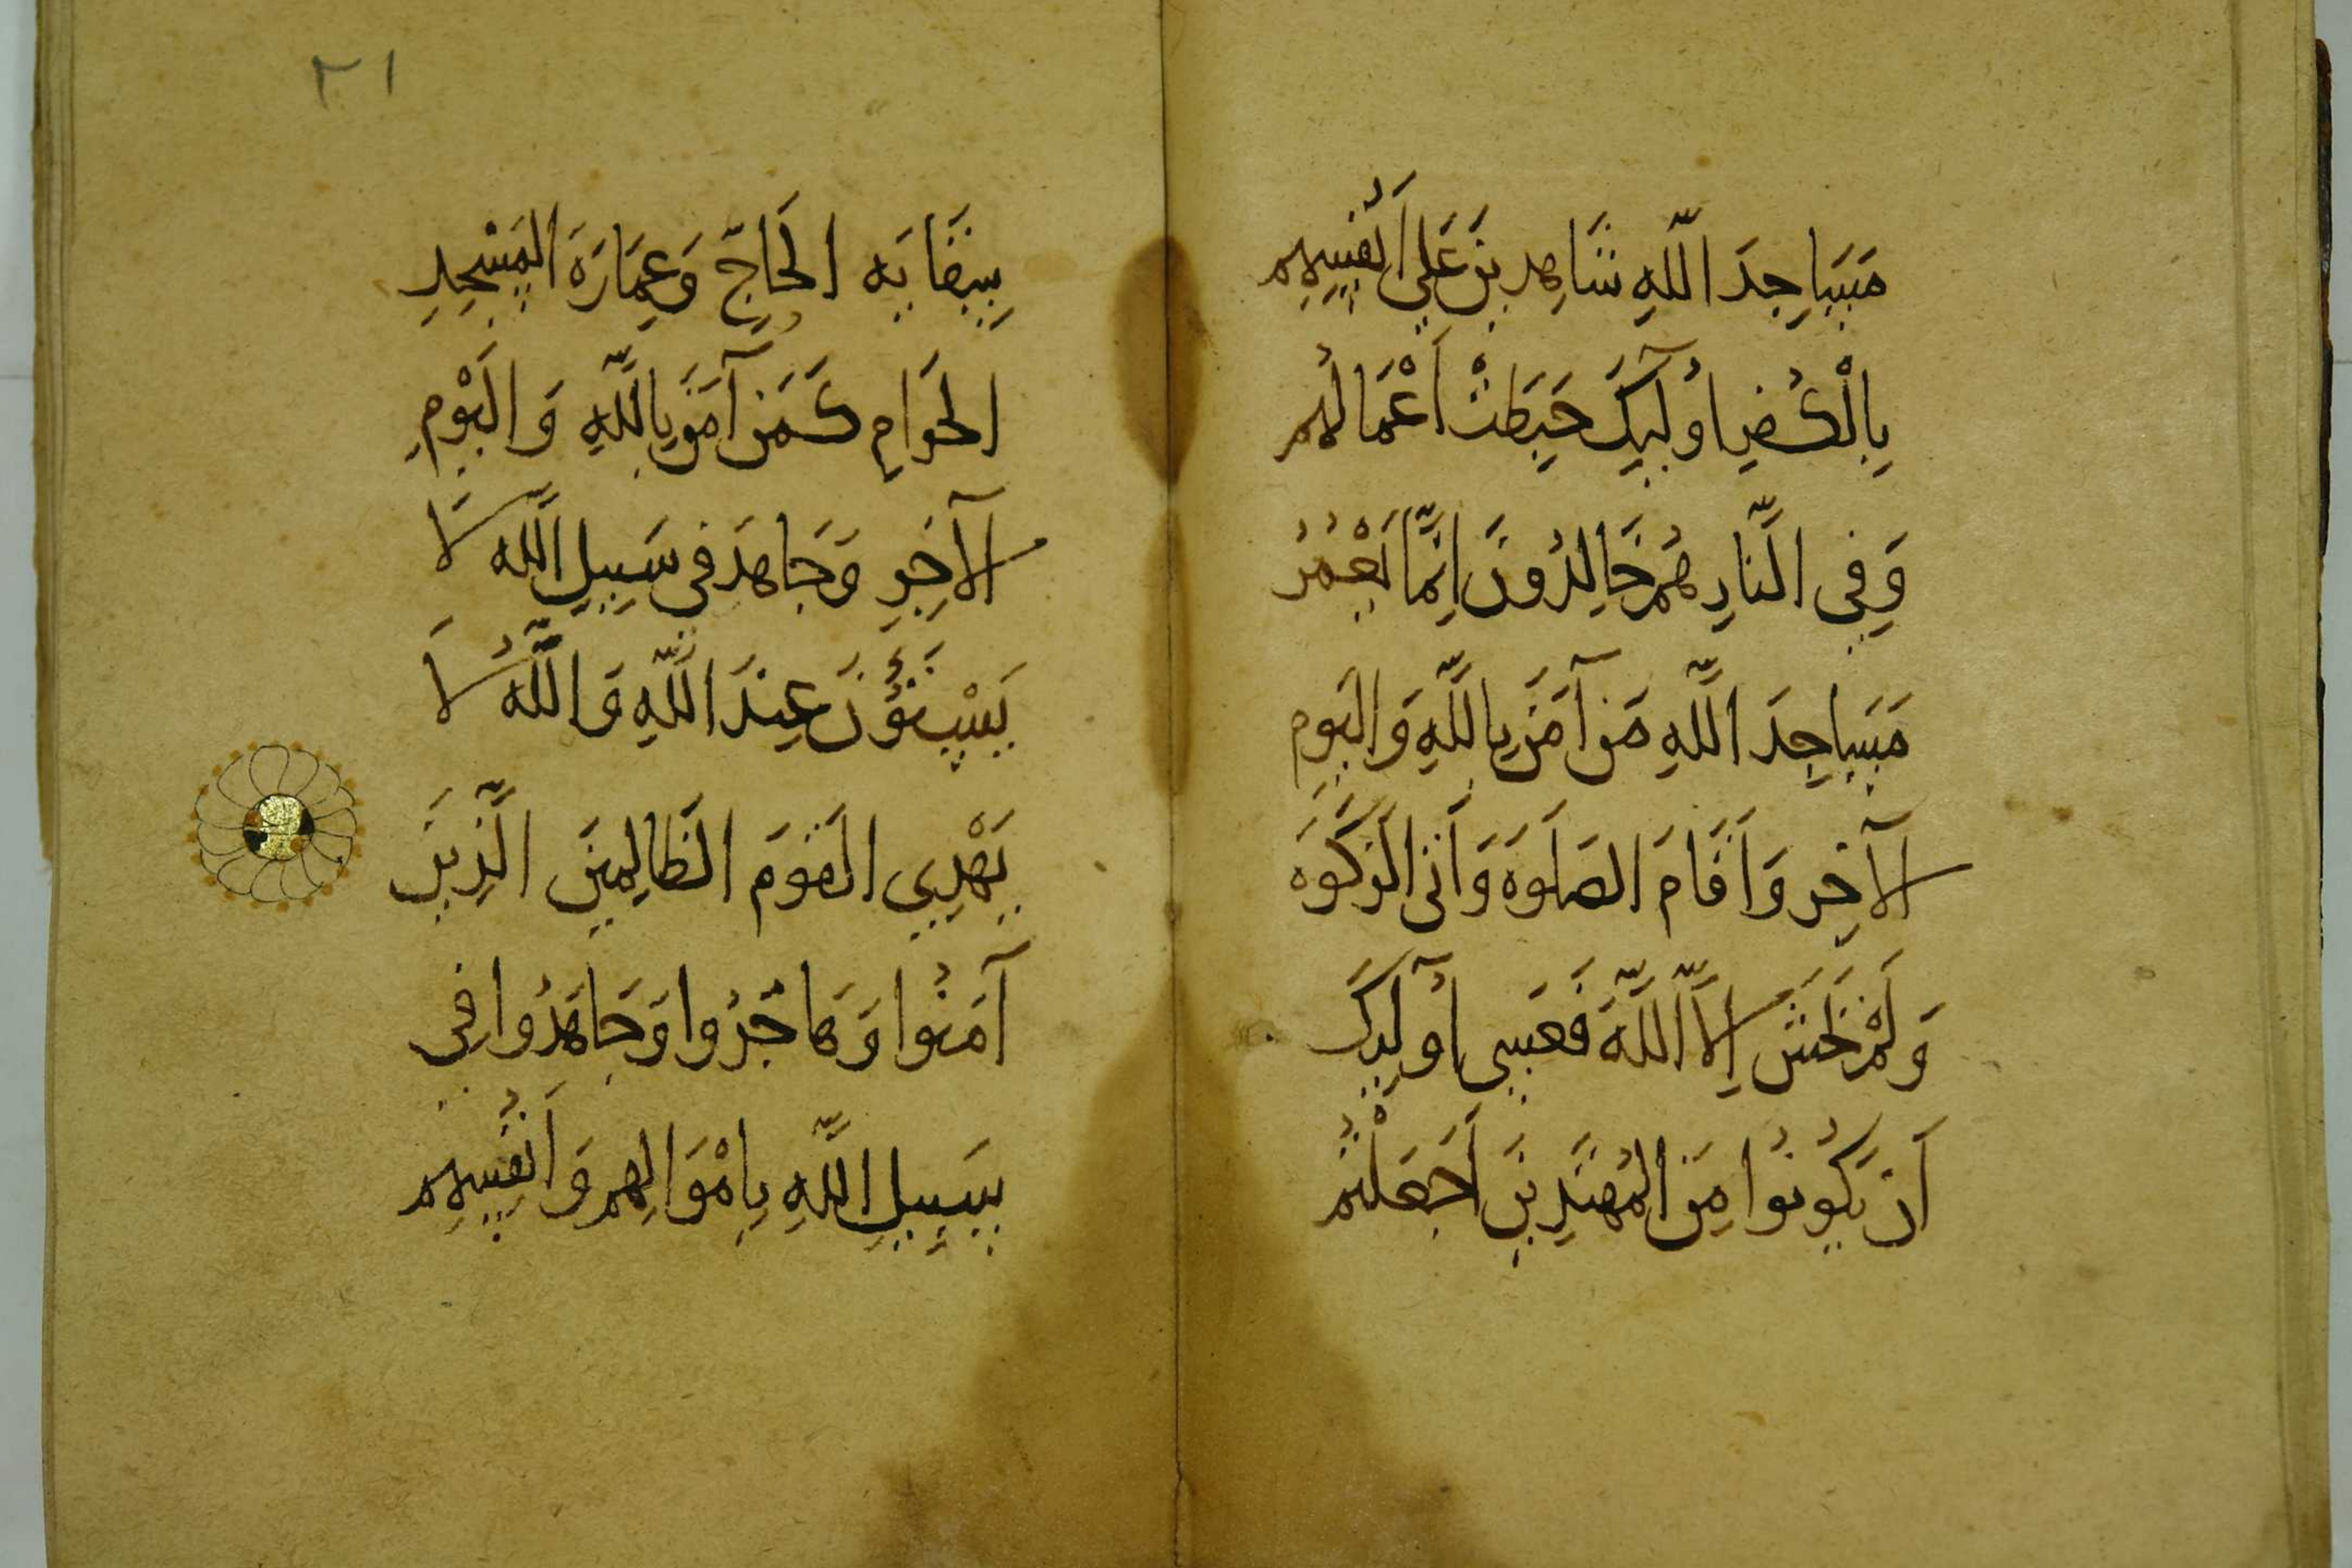 مَسَاجِدَ اللّٰهِ شَاهِدِينَ عَلَى اَنْفُسِهِم
بِالْكُفْرِ اُولٰٓئِكَ حَبِطَتْ اَعْمَالُهُم
وَفِي النَّارِ هُمْ خَالِدُونَ اِنَّمَا يَعْمُرُ
مَسَاجِدَ اللّٰهِ مَن آمَنَ بِاللّٰهِ وَالْيَومِ
الآخِرِ وَاَقَامَ الصَلَوةَ وَآتَى الزَكَوةَ
وَلَمْ يَخْشَ اِلَّا اللّٰهَ فَعَسَى اُولٰٓئِكَ
اَن يَكُونُوا مِنَ الْمُهْتَدِينَ اَجَعَلْتُم
سِقَايَةَ الْحَاجِّ وَعِمَارَةَ الْمَسْجِدِ
الْحَرَامِ كَمَنْ آمَنَ بِاللّٰهِ وَالْيَوْمِ
الآخِرِ وَجَاهَدَ فِي سَبِيلِ اللّٰهِ لَا
يَسْتَوُونَ عِندَ اللّٰهِ وَاللّٰهُ لَا
يَهْدِي الْقَوْمَ الظَالِمِينَ الَّذِينَ
آمَنُوا وَهَاجَرُوا وَجَاهَدُوا فِي
سَبِيلِ اللّٰهِ بِاَمْوَالِهِم وَاَنْفُسِهِم
٢١